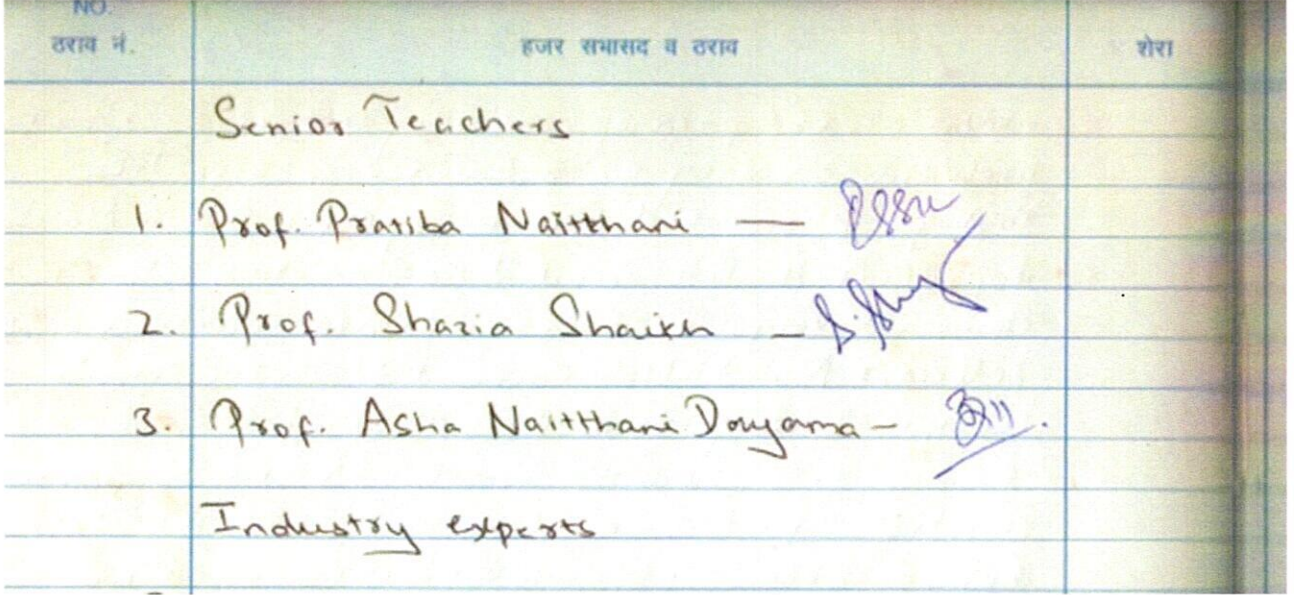 NO.
ठराव नं. हजर सभासद व ठराव शेरा
Senior Teachers
1. Prof. Pratiba Naitthani —
2. Prof. Shazia Shaikh —
3. Prof. Asha Naitthani Douyama –
Industry experts